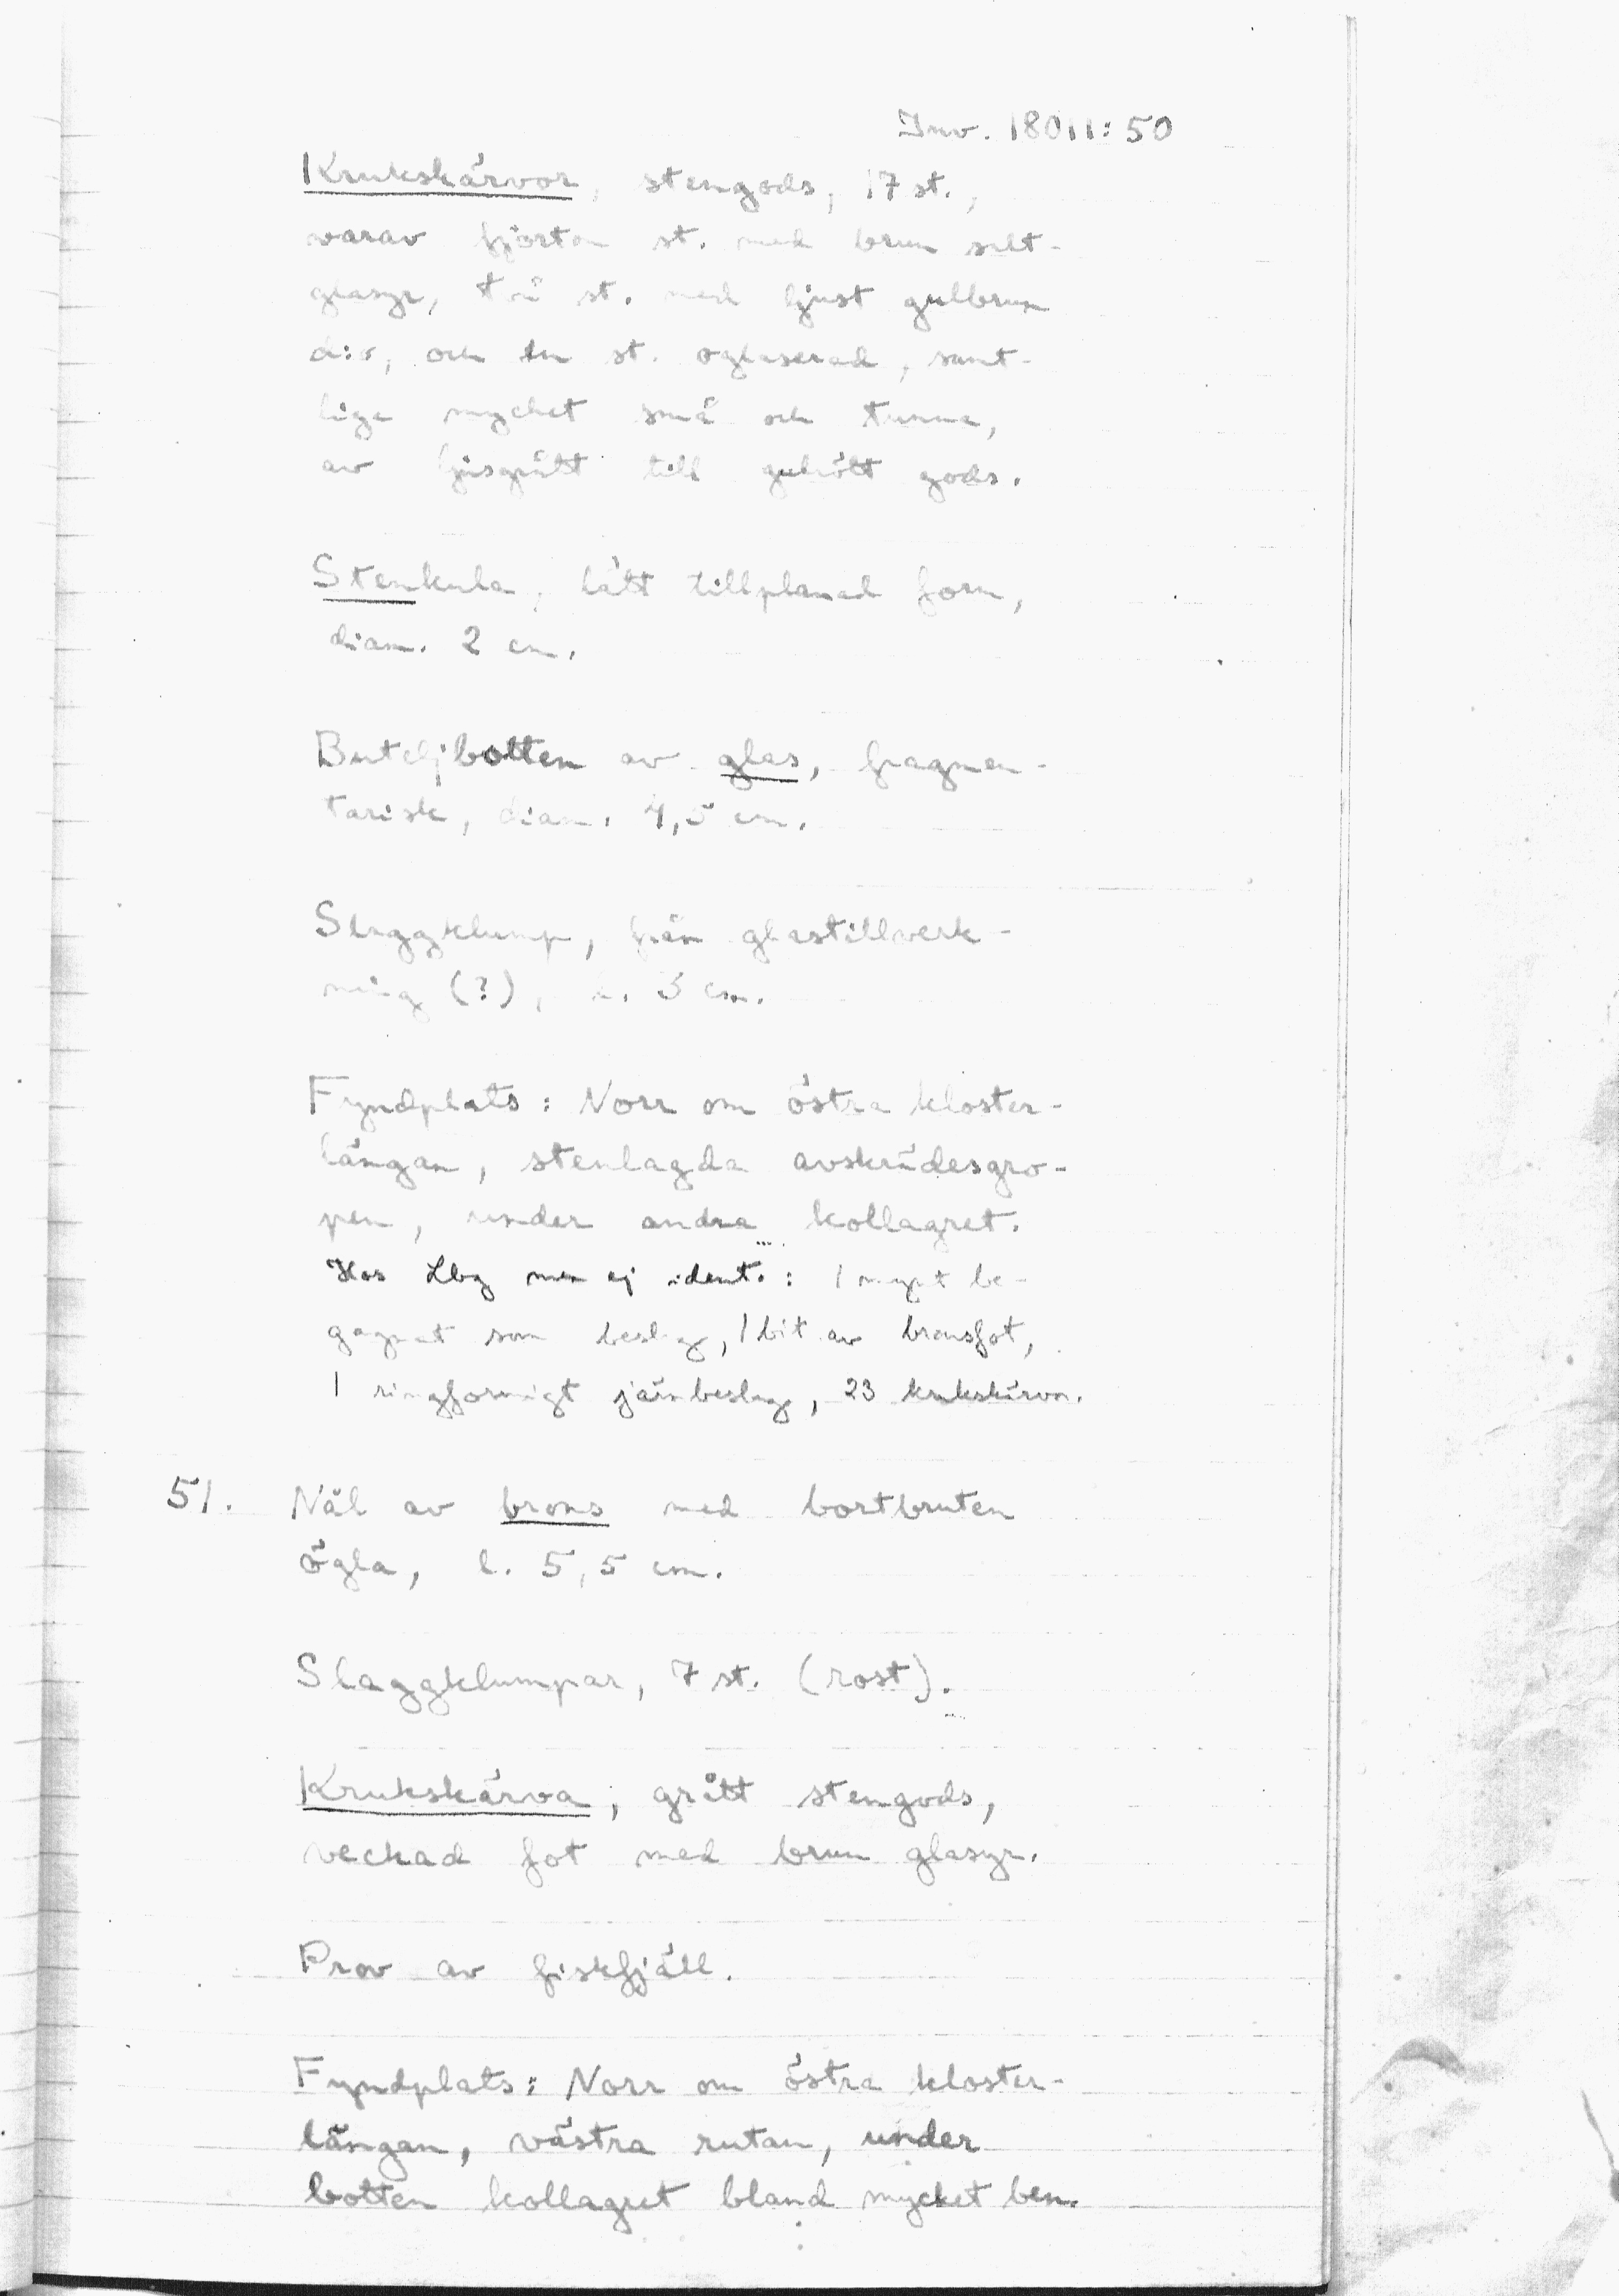 Inv. 18011:50
Krukskärvor, stengods, 17 st.,
varav fjorton st. med brun salt-
glasyr, två st. med ljust gulbrun
d:o, och en st. oglaserad, samt-
liga mycket små och tunna,
av ljusgrått till gulvitt gods.
Stenkula, lätt tillplanad form,
diam. 2 cm.
Buteljbotten av glas, fragmen-
tarisk, diam. 4,5 cm.
Slaggklump, från glastillverk-
ning (?), l. 3 cm.
Fyndplats: Norr om östra kloster-
längan, stenlagda avskrädesgro-
pen, under andra kollagret.
Hos Lbg men ej ident.: 1 mynt be-
gagnat som beslag, 1 bit av bronsfot,
1 ringformigt järnbeslag, 23 krukskärvor.
51. Nål av brons med bortbruten
ögla, l. 5,5 cm.
Slaggklumpar, 7 st. (rost).
Krukskärva, grått stengods,
veckad fot med brun glasyr.
Prov av fiskfjäll.
Fyndplats: Norr om östra kloster-
längan, västra rutan, under
botten kollagret bland mycket ben.